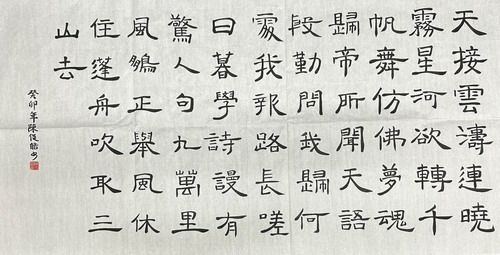 天接雲濤連曉
霧星河欲轉千
帆舞仿佛夢魂
歸帝所聞天語
殷勤問我歸何
處我報路長嗟
日暮學詩謾有
驚人句九萬里
風鵬正舉風休
住蓬舟吹取三
山去
癸卯年陳